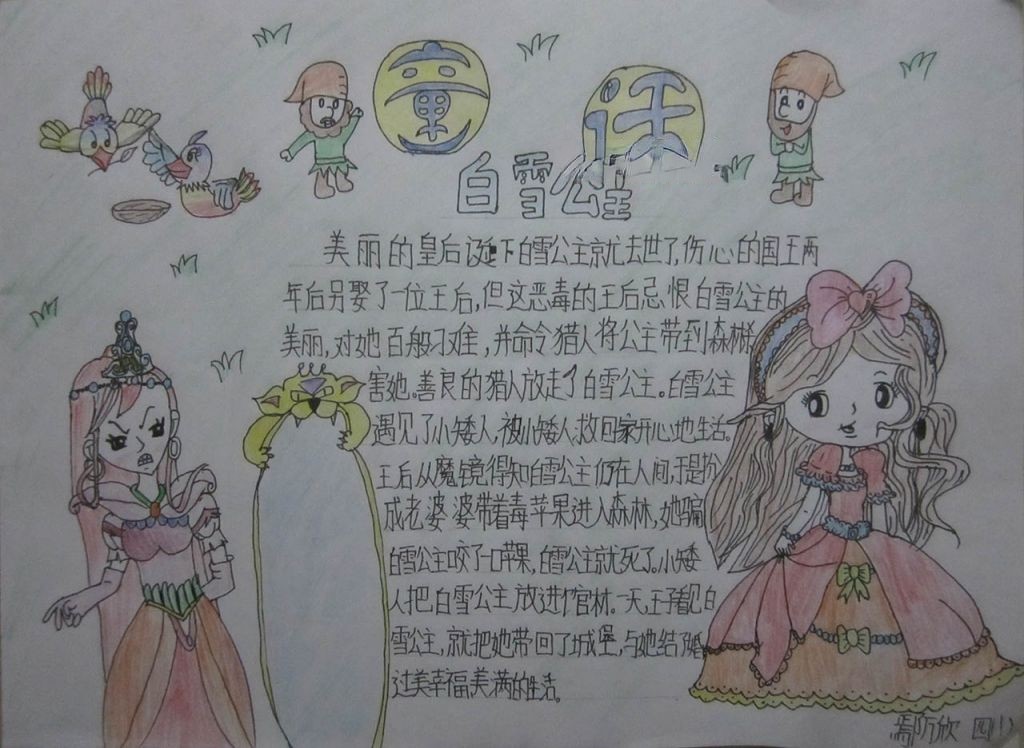 童话
白雪公主
美丽的皇后诞下白雪公主就去世了,伤心的国王两
年后另娶了一位王后,但这恶毒的王后忌恨白雪公主的
美丽,对她百般刁难,并命令猎人将公主带到森林
害她。善良的猎人放走了白雪公主。白雪公主
遇见了小矮人,被小矮人救回家开心地生活。
王后从魔镜得知白雪公主仍在人间,于是扮
成老婆婆带着毒苹果进入森林,她骗
白雪公主咬了一口苹果,白雪公主就死了。小矮
人把白雪公主放进个官材。一天,王子看见白
雪公主,就把她带回了城堡,与她结了婚
过美幸福美满的生活。
欣 四(1)